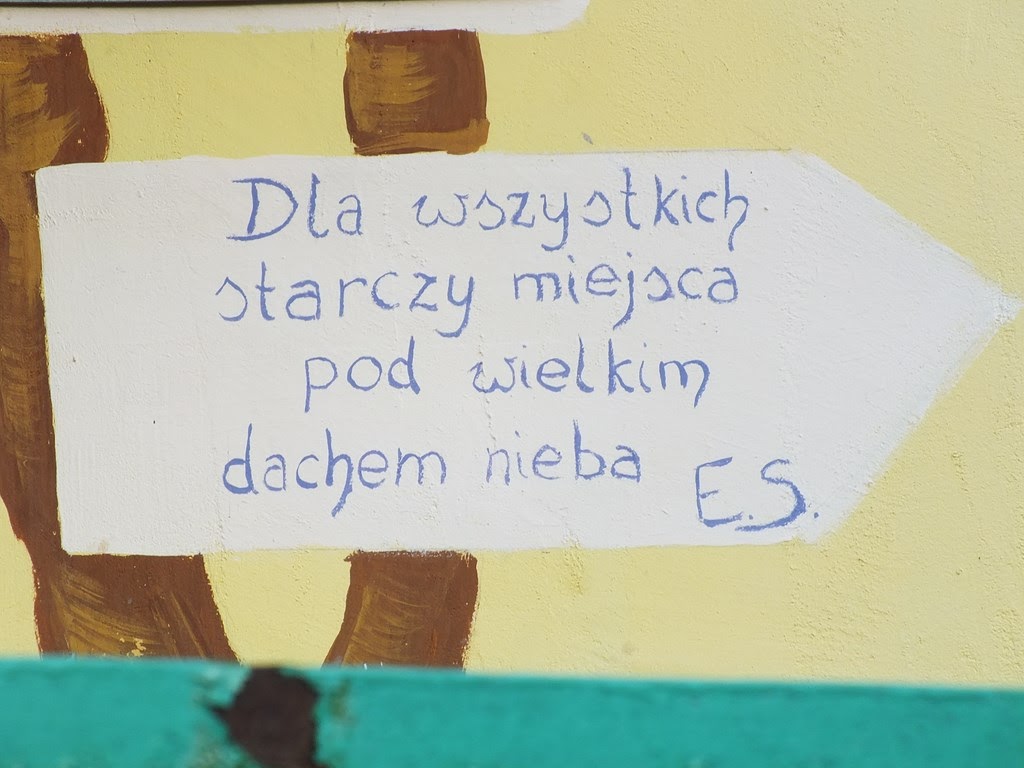 Dla wszystkich
starczy miejsca
pod wielkim
dachem nieba
E.S.